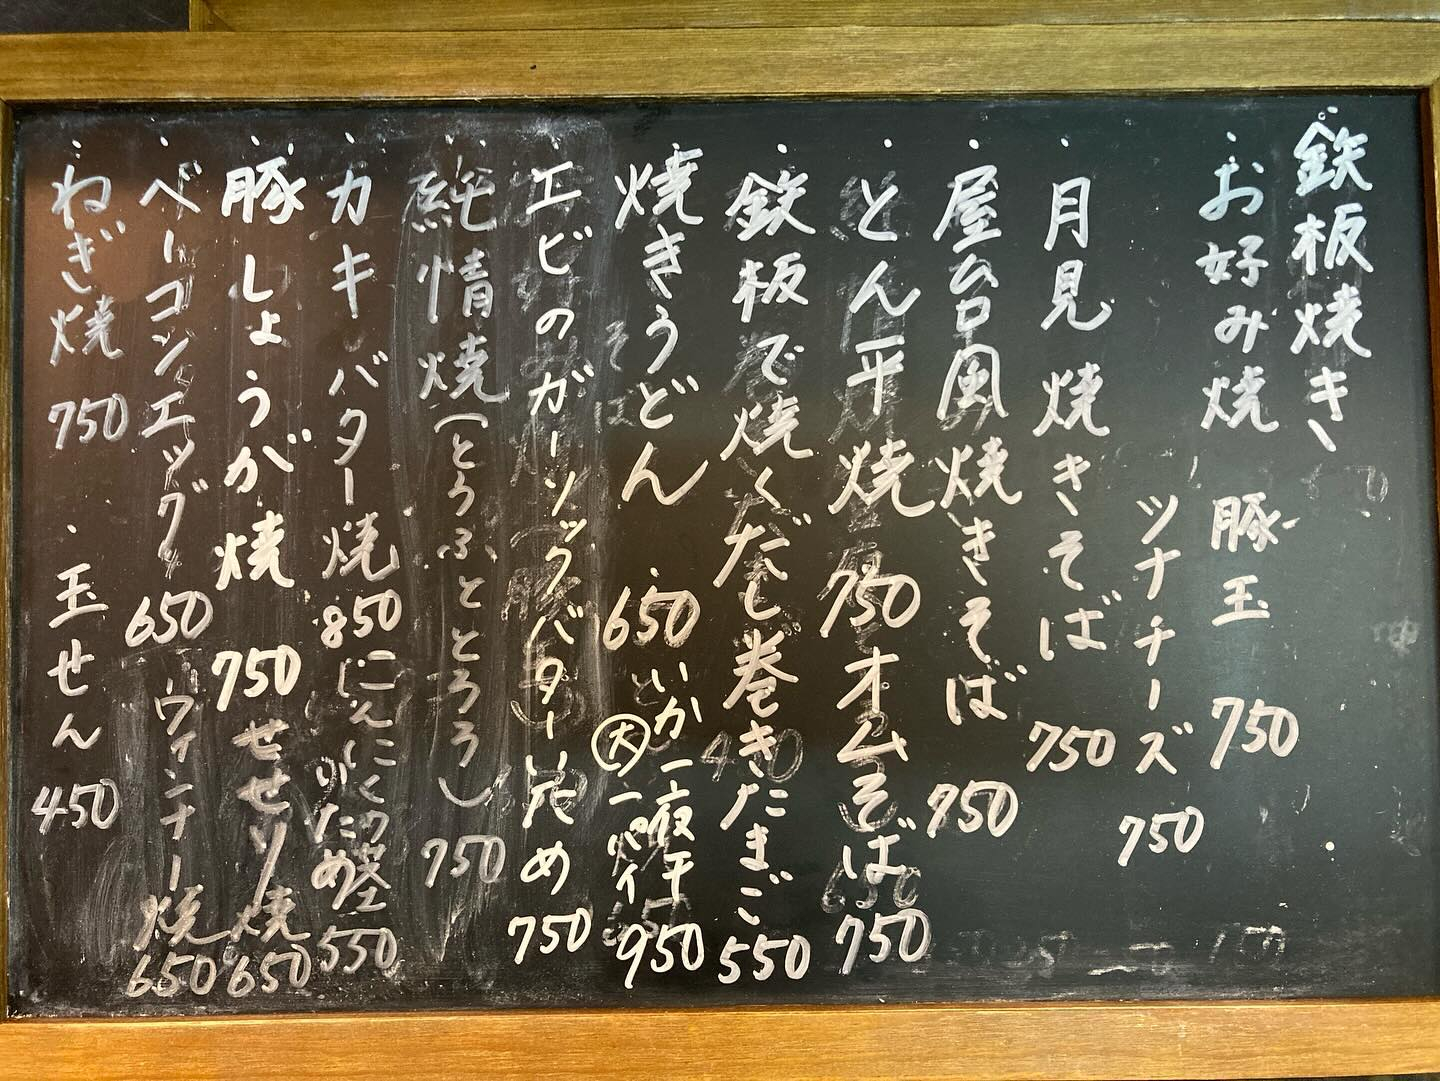 鉄板焼き
・お好み焼 豚玉 750
ツナチーズ 750
・月見焼きそば 750
・屋台風焼きそば 750
・とん平焼 750 オムそば 750
・鉄板で焼くだし巻きたまご 550
・焼きうどん 650 いか一夜干 ㊅一パイ 950
・エビのガーリックバターいため 750
・純情焼(とうふととろろ) 750
・カキバター焼 850 にんにくの茎いため 550
・豚しょうが焼 750 せせり焼 650
・ベーコンエッグ 650 ウィンナー焼 650
・ねぎ焼 750 ・玉せん 450